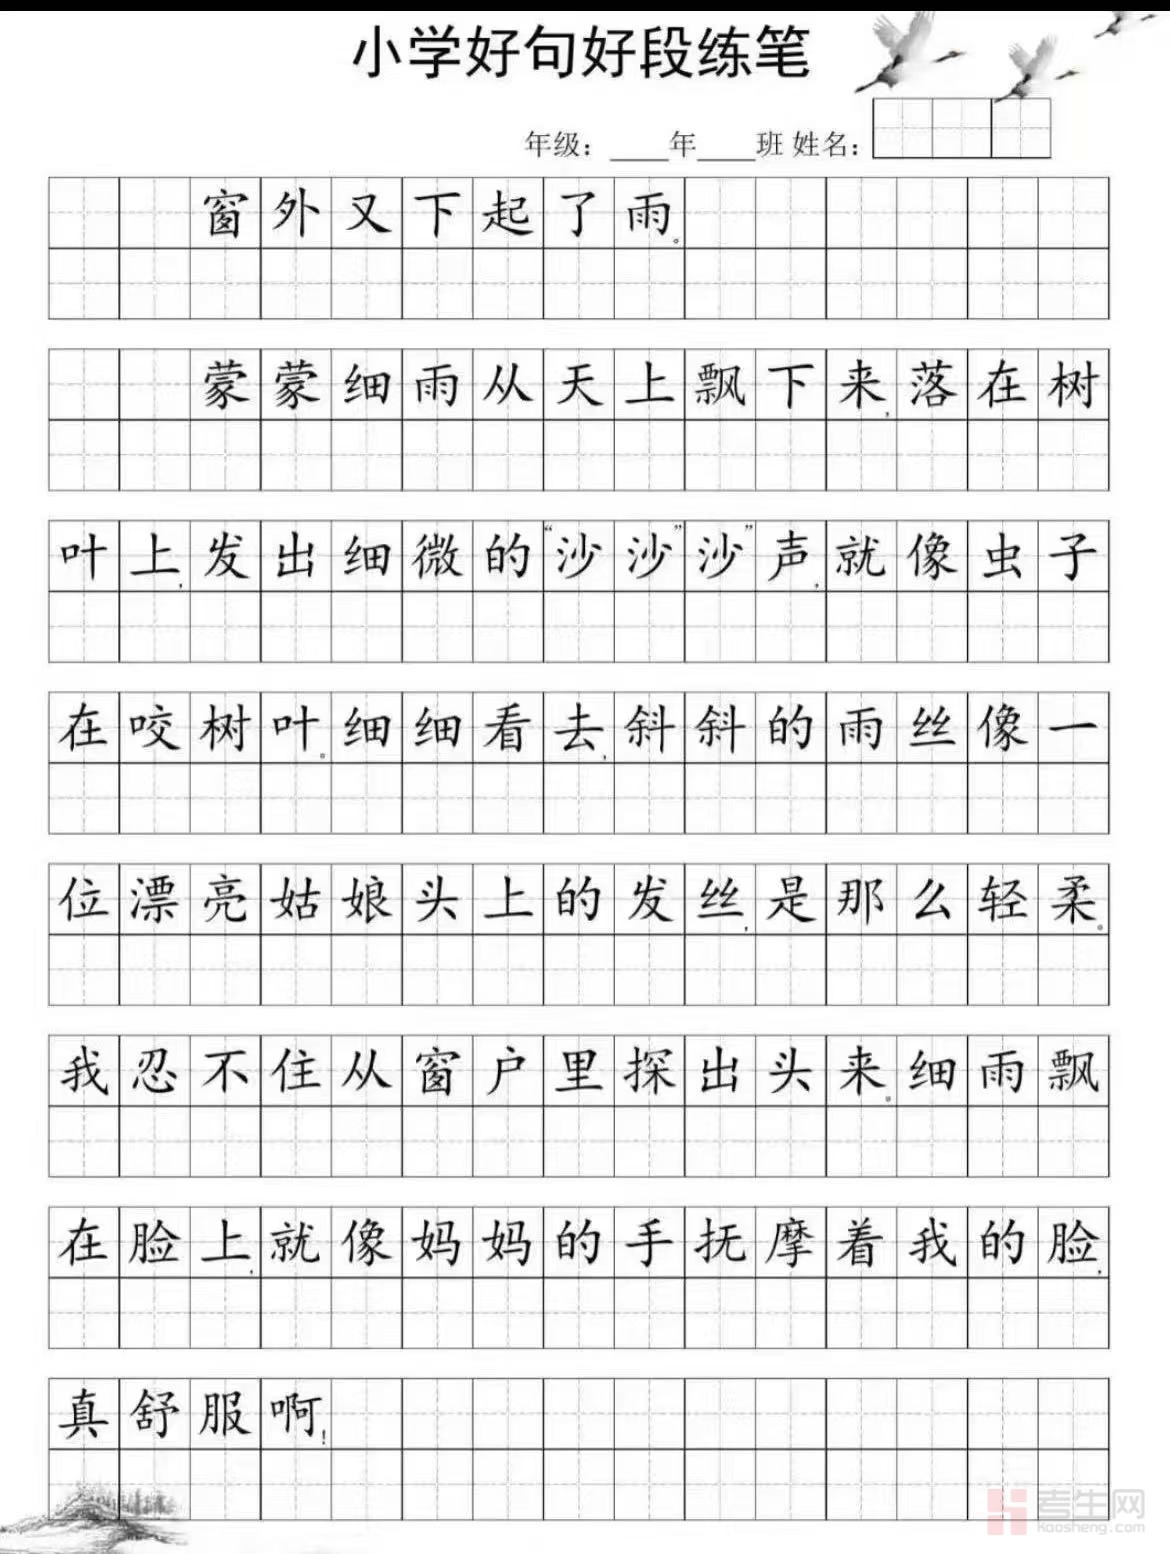 小学好句好段练笔
年级：____年____班 姓名：
窗外又下起了雨。
蒙蒙细雨从天上飘下来,落在树
叶上,发出细微的“沙沙”沙”声,就像虫子
在咬树叶。细细看去,斜斜的雨丝像一
位漂亮姑娘头上的发丝,是那么轻柔。
我忍不住从窗户里探出头来。细雨飘
在脸上,就像妈妈的手抚摩着我的脸,
真舒服啊!
考生网
kaosheng.com